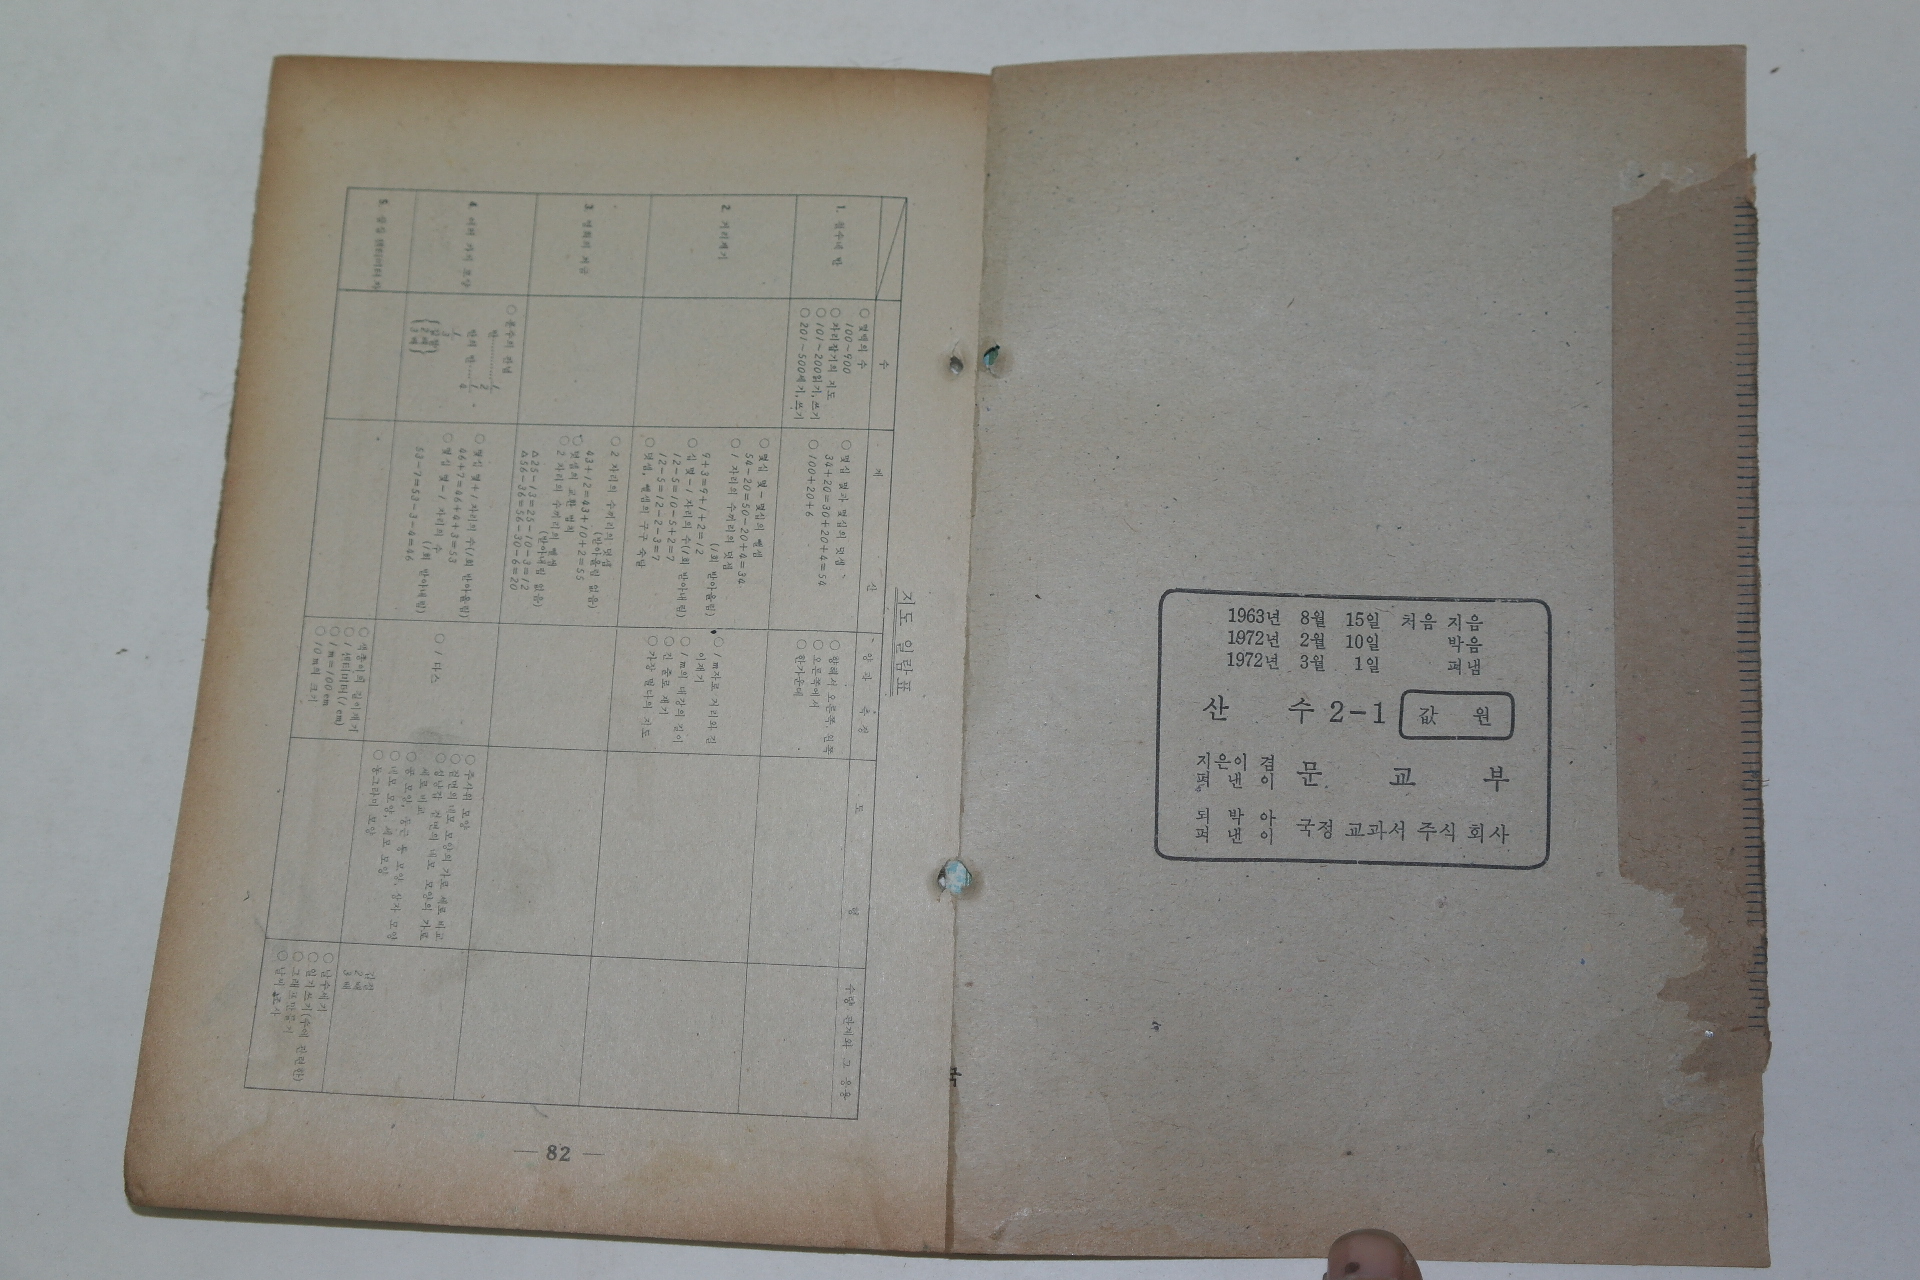 지도 일람표
수
계 산
양과 측정
도 형
수량 관계와 그 응용
1. 철수네 반
○ 몇백의 수
100~900
○ 자리잡기의 지도
○ 101~200읽기, 쓰기
○ 201~500세기, 쓰기
○ 몇십 몇과 몇십의 덧셈
34+20=30+20+4=54
○ 100+20+6
○ 향해서 오른쪽 왼쪽
○ 오른쪽에서
○ 한가운데
2. 거리재기
○ 몇십 몇-몇십의 뺄셈
54-20=50-20+4=34
○ 1 자리의 수끼리의 덧셈
9+3=9+1+2=12
(1회 받아올림)
○ 십 몇-1 자리의 수(1회 받아내림)
12-5=10-5+2=7
12-5=12-2-3=7
○ 덧셈, 뺄셈의 구구 숙달
○ 1m자로 거리와 길
이재기
○ 1m의 대강의 길이
○ 긴 줄로 재기
○ 가장 멀다의 지도
3. 영희의 저금
○ 2 자리의 수끼리의 덧셈
(받아올림 없음)
43+12=43+10+2=55
○ 덧셈의 교환 법칙
○ 2 자리의 수끼리의 뺄셈
(받아내림 없음)
△25-13=25-10-3=12
△56-36=56-30-6=20
4. 여러 가지 모양
○ 분수의 관념
반
1/2
반의 반
1/4
1/3
○ 몇십 몇+1 자리의 수(1회 받아올림)
46+7=46+4+3=53
○ 몇십 몇-1 자리의 수
(1회 받아내림)
53-7=53-3-4=46
○ 1 다스
○ 주사위 모양
○ 겉면의 네모 모양의 가로 세로 비교
○ 성냥갑 겉면의 네모 모양의 가로
세로 비교
○ 공 모양, 둥근 통 모양, 상자 모양
○ 네모 모양, 세모 모양
○ 동그라미 모양
갑절
2배
3배
○ 색종이의 길이재기
○ 1 센티미터(1cm)
○ 1m=100cm
○ 10m의 크기
○ 남수세기
○ 일기쓰기(수에 관련한)
○ 그래프만들기
— 82 —
1963년 8월 15일 처음 지음
1972년 2월 10일 박음
1972년 3월 1일 펴냄
산 수 2-1 값 원
지은이 겸
펴 낸 이 문 교 부
되 박 아
펴 낸 이 국정 교과서 주식 회사
국